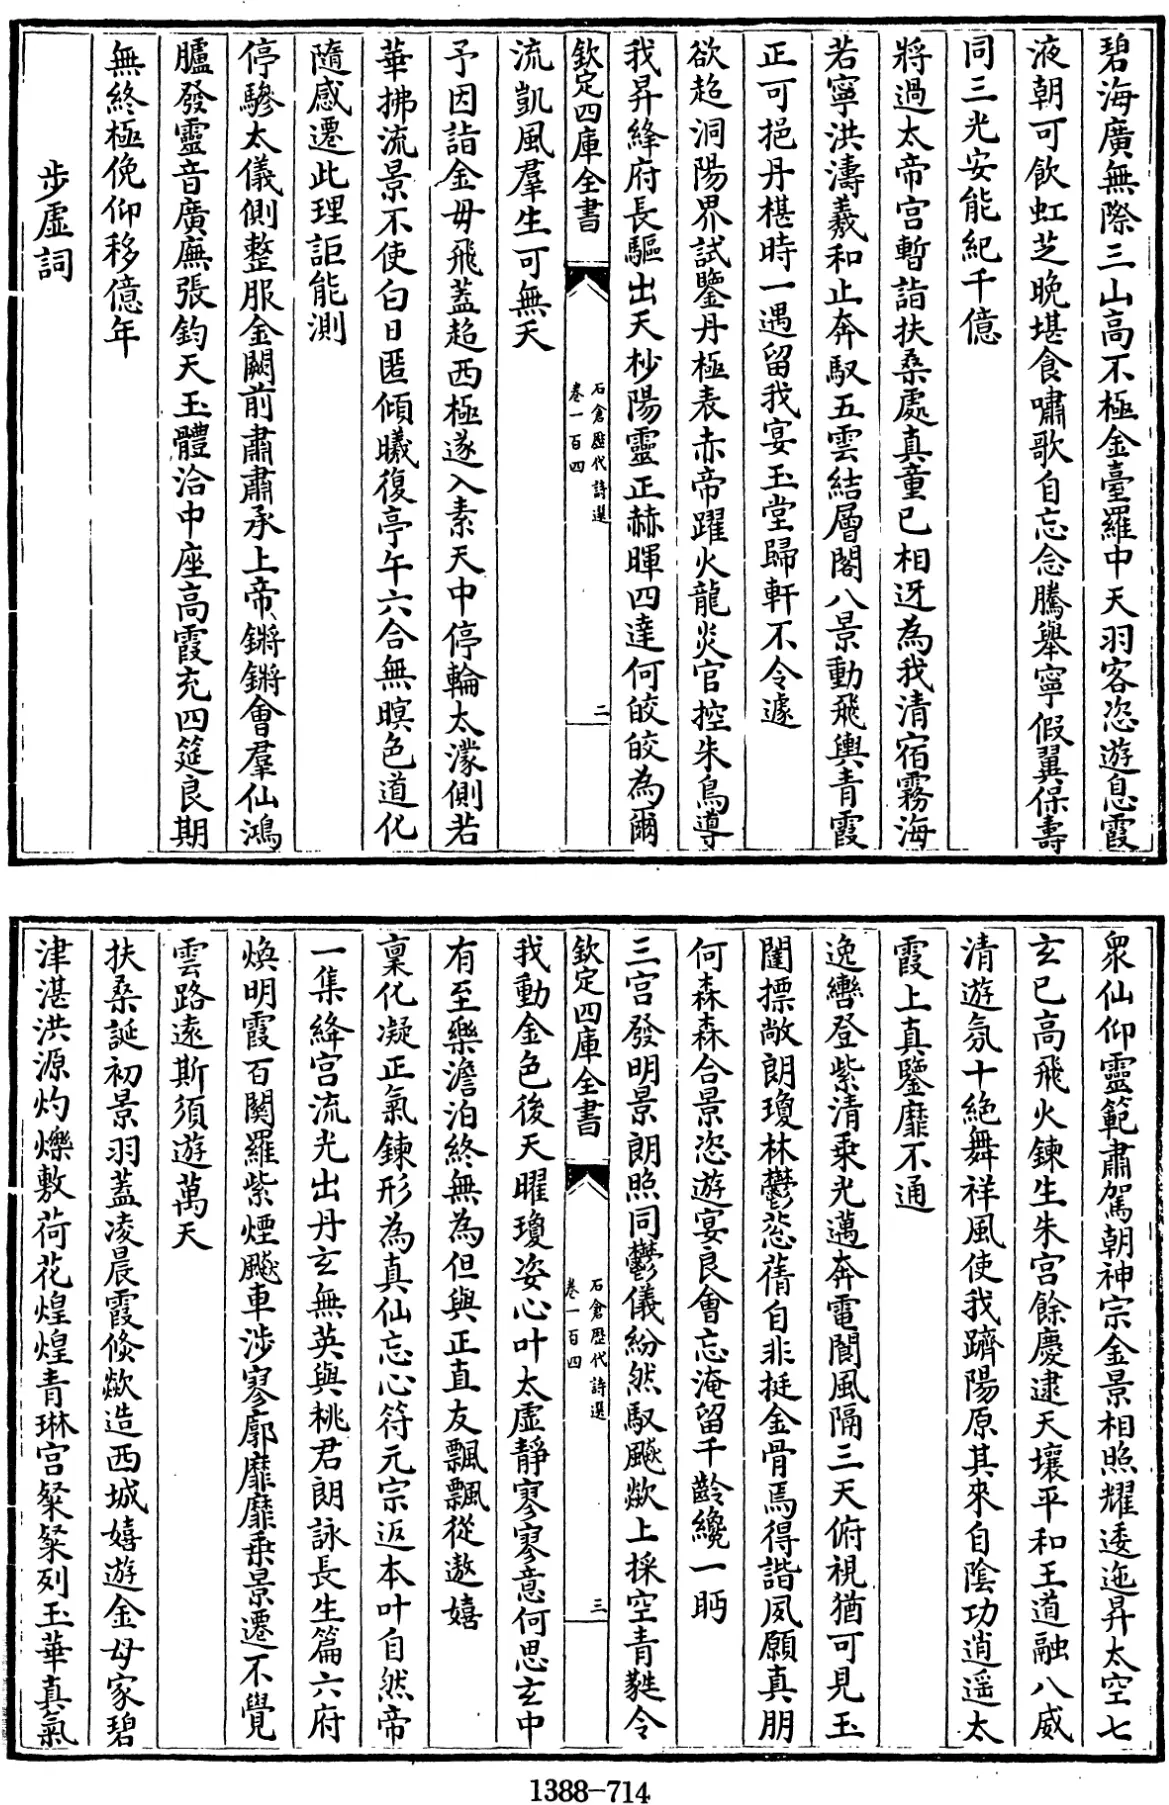 碧海廣無際三山高不極金臺羅中天羽客恣遊息霞
液朝可飲虹芝晚堪食嘯歌自忘念騰舉寧假翼保壽
同三光安能紀千億
將過太帝宮暫詣扶桑處真童已相迓為我清宿霧海
若寧洪濤羲和止奔馭五雲結層閣八景動飛輿青霞
正可挹丹椹時一遇留我宴玉堂歸軒不令遽
欲超洞陽界試鑒丹極表赤帝躍火龍炎官控朱鳥導
我昇絳府長驅出天杪陽靈正赫暉四達何皎皎為爾
欽定四庫全書
石倉歷代詩選
卷一百四
二
流凱風羣生可無天
予因詣金母飛蓋超西極遂入素天中停輪太濛側若
華拂流景不使白日匿傾曦復亭午六合無暝色道化
隨感遷此理詎能測
停驂太儀側整服金闕前肅肅承上帝鏘鏘會羣仙鴻
臚發靈音廣廡張鈞天玉體洽中座高霞充四筵良期
無終極俛仰移億年
步虛詞
眾仙仰靈範肅駕朝神宗金景相照耀逶迤昇太空七
玄已高飛火鍊生朱宮餘慶逮天壤平和王道融八威
清遊氛十絕舞祥風使我躋陽原其來自陰功逍遥太
霞上真鑒靡不通
逸轡登紫清乘光邁奔電閬風隔三天俯視猶可見玉
闥摽敞朗瓊林鬱葱蒨自非挺金骨焉得諧夙願真朋
何森森合景恣遊宴良會忘淹留千齡纔一眄
三宮發明景朗照同鬱儀紛然馭飈歘上採空青蕤令
欽定四庫全書
石倉歷代詩選
卷一百四
三
我動金色後天曜瓊姿心叶太虛靜寥寥意何思玄中
有至樂澹泊終無為但與正直友飄飄從遨嬉
稟化凝正氣鍊形為真仙忘心符元宗返本叶自然帝
一集絳宮流光出丹玄無英與桃君朗詠長生篇六府
煥明霞百關羅紫煙飈車涉寥廓靡靡乘景遷不覺
雲路遠斯須遊萬天
扶桑誕初景羽蓋凌晨霞倐歘造西城嬉遊金母家碧
津湛洪源灼爍敷荷花煌煌青琳宮粲粲列玉華真氣
1388-714